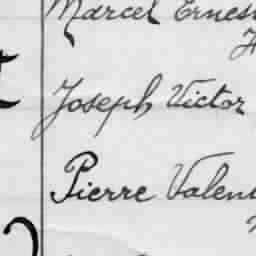 Marcel Ernest
Joseph Victor
Pierre Valen